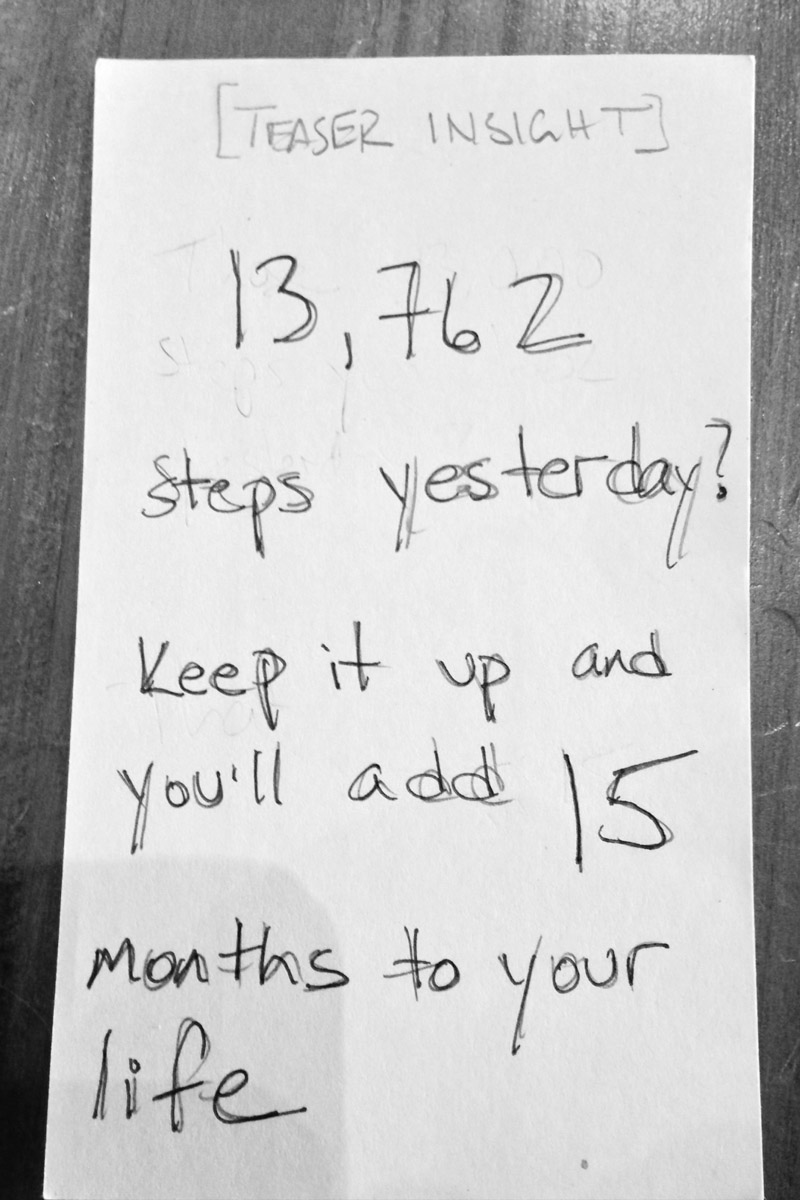 [TEASER INSIGHT]
13,762
steps yesterday?
Keep it up and
you'll add 15
months to your
life